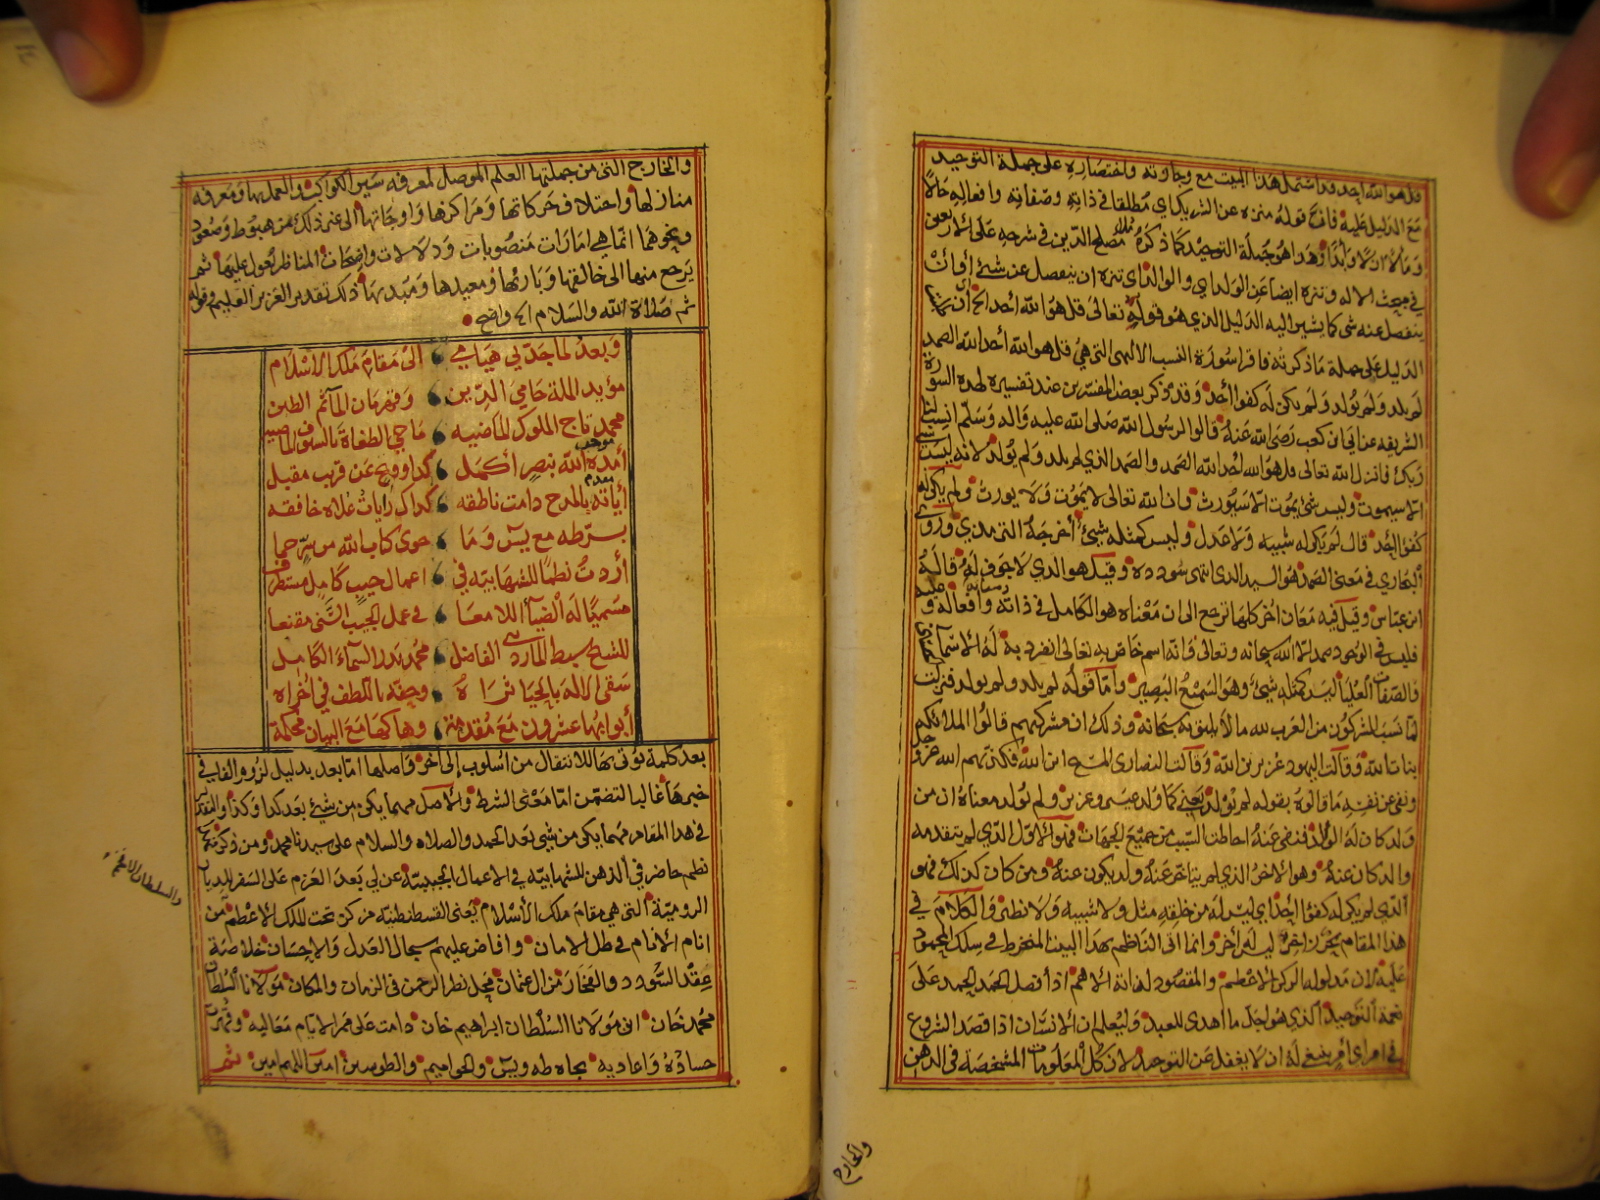 قل هو الله احد وقد اشتمل هذا البيت مع وجازته واختصاره على جملة التوحيد
مع الدليل عليه فان قوله منزه عن الشريك اي مطلقا في ذاته وصفاته وافعاله حالا
ومالا ازلا وابدا وهذا هو جملة التوحيد كما ذكره مصلح الدين في شرحه على الاربعين
في مبحث الاله وتنزه ايضا عن الولد اي والوالد اي تنزه ان ينفصل عن شئ او ان
ينفصل عنه شي كما يشير اليه الدليل الذي هو قوله تعالى قل هو الله احد الخ
الدليل على جملة ما ذكرته فاقرا سورة النسب الالهي التي هي قل هو الله احد الله الصمد
لم يلد ولم يولد ولم يكن له كفوا احد وقد ذكر بعض المفسرين عند تفسيره لهذه السورة
الشريفه عن ابي ابن كعب رضي الله عنه قالوا لرسول الله صلى الله عليه واله وسلم انسب لنا
ربك فانزل الله تعالى قل هو الله احد الله الصمد والصمد الذي لم يلد ولم يولد لانه ليس شئ
الا سيموت وليس شئ يموت الا سيورث وان الله تعالى لا يموت ولا يورث ولم يكن له
كفوا احد قال لم يكن له شبيه ولا عدل وليس كمثله شيئ اخرجه الترمذي وروى
البخاري في معنى الصمد هو السيد الذي انتهى سودده وقيل هو الذي لا جوف له قاله
ابن عباس وقيل فيه معان اخر كلها ترجع الى ان معناه هو الكامل في ذاته وصفاته وافعاله
فليس في الوجود صمد الا الله سبحانه وتعالى وانه اسم خاص به تعالى انفرد به له الاسما الحسنى
والصفات العليا ليس كمثله شيئ وهو السميع البصير واما قوله لم يلد ولم يولد فنزلت
لما نسب المشركون من العرب لله ما لا يليق به سبحانه وذلك ان مشركيهم قالوا الملائكه
بنات الله وقالت اليهود عزير بن الله وقالت النصارى المسيح ابن الله فكذبهم الله عز وجل
ونفى عن نفسه ما قالوه بقوله لم يولد يعني كما ولد عيسى وعزير ولم يولد معناه ان من
ولد كان له والد فنفى عنه احاطة النسب من جميع الجهات فهو الاول الذي لم يتقدمه
والد كان عنه وهو الاخر الذي لم يتاخر عنه ولد يكون عنه ومن كان كذلك فهو
الذي لم يكن له كفوا احد اي ليس له من خلقه مثل ولا شبيه ولا نظير والكلام في
هذا المقام بحر زاخر ليس له اخر وانما اتى الناظم بهذا البيت المنخرط في سلك المحمود
عليه لان مدلوله الركن الاعظم والمقصود لذاته الاهم اذ افضل الحمد الحمد على
نعمة التوحيد الذي هو اجل ما اهدى للعبد وليعلم ان الانسان اذا قصد الشروع
في امر اي امر ينبغي له ان لا يغفل عن التوحيد لان كل المعلومات المشخصة في الذهن
والخارج
والخارج التي من جملتها العلم الموصل لمعرفة سير الكواكب والعمل بها ومعرفة
منازلها واختلاف حركاتها ومراكزها واوجاتها الى غير ذلك من هبوط وصعود
ونحوهما انما هي امارات منصوبات ودلالات واضحات المناظر يعول عليها ثم
يرجع منها الى خالقها وبارئها ومعيدها ومبديها ذلك تقدير العزيز العليم وقوله
ثم صلاة الله والسلام الخ واضح
وبعد لما جد لي هيامي الى مقام ملك الاسلام
مؤيد الملة حامي الدين وقهرمان المآثم الطين
محمد تاج الملوك الماضيه ماحي الطغاة بالسيوف الماضيه
أمده الله بنصر أكمل كذا وفتح عن قريب مقبل
آياته بالمدح دامت ناطقه كذاك رايات علاه خافقه
بسر طه مع يس وما حوى كتاب الله من سر حما
أردت نظما للشهابية في اعمال جيب كامل مستظرف
مسميا له الضيأ اللامعا في عمل الجيب السني مقنعا
للشيخ سبط المارديني الفاضل محمد بدر السماء الكامل
سقى الاله بالحيا ثراه وحفه باللطف في اخراه
أبوابها عشرون مع مقدمة وهاكها مع البيان محكمة
بعد كلمة يؤتى بها للانتقال من اسلوب الى آخر واصلها اما بعد بدليل لزوم الفاء في
خبرها غالبا لتضمن اما معنى الشرط والاصل مهما يكن من شيئ بعد كذا وكذا والتقدير
في هذا المقام مهما يكن من شيئ بعد الحمد والصلاة والسلام على سيدنا محمد ومن ذكر معه
نظم حاضر في الذهن للشهابية في الاعمال الجيبية عن لي بعد العزم على السفر للديار
الرومية التي هي مقام ملك الاسلام يعنى القسطنطنية مركز تحت الملك الاعظم من
والسلطان الافخم
انام الأنام في ظل الامان وافاض عليهم سجال العدل والاحسان خلاصة
عقد السودد والفخار من ال عثمان محل نظر الرحمن في الزمان والمكان مولانا السلطان
محمد خان ابن مولانا السلطان ابراهيم خان دامت على ممر الايام معاليه وقهرت
حساده واعاديه بجاه طه ويس والحواميم والطواسين امين اللهم امين ثم